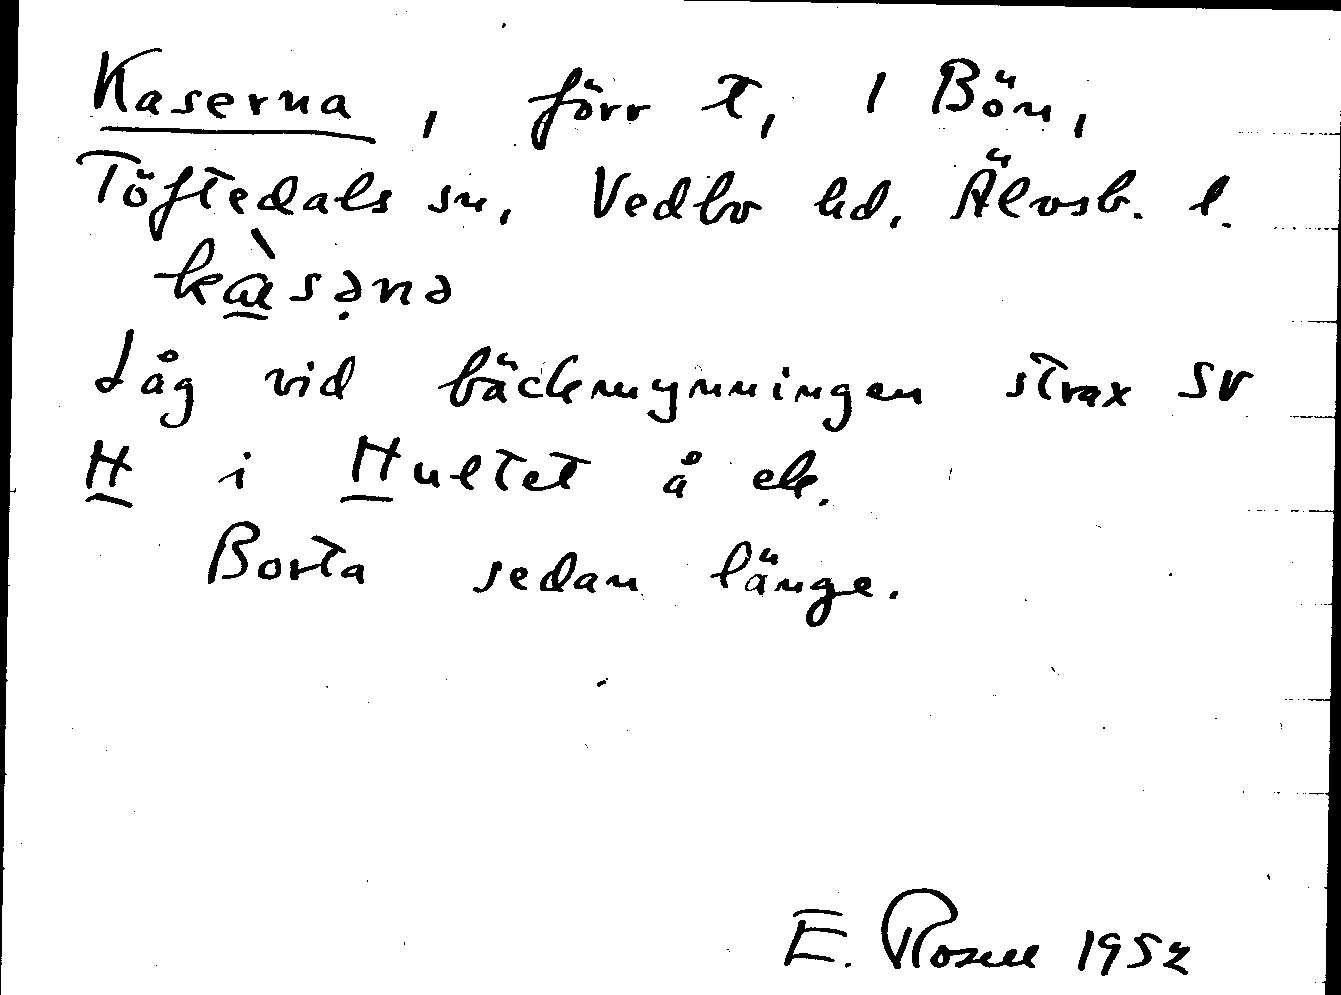 Kaserna, förr t, 1 Bön,
Töftedals sn, Vedbo hd. Älvsb. l.
kàsəṇə
Låg vid bäckmynningen strax SV
H i Hultet å ek.
Borta sedan länge.
E. Rosell 1952